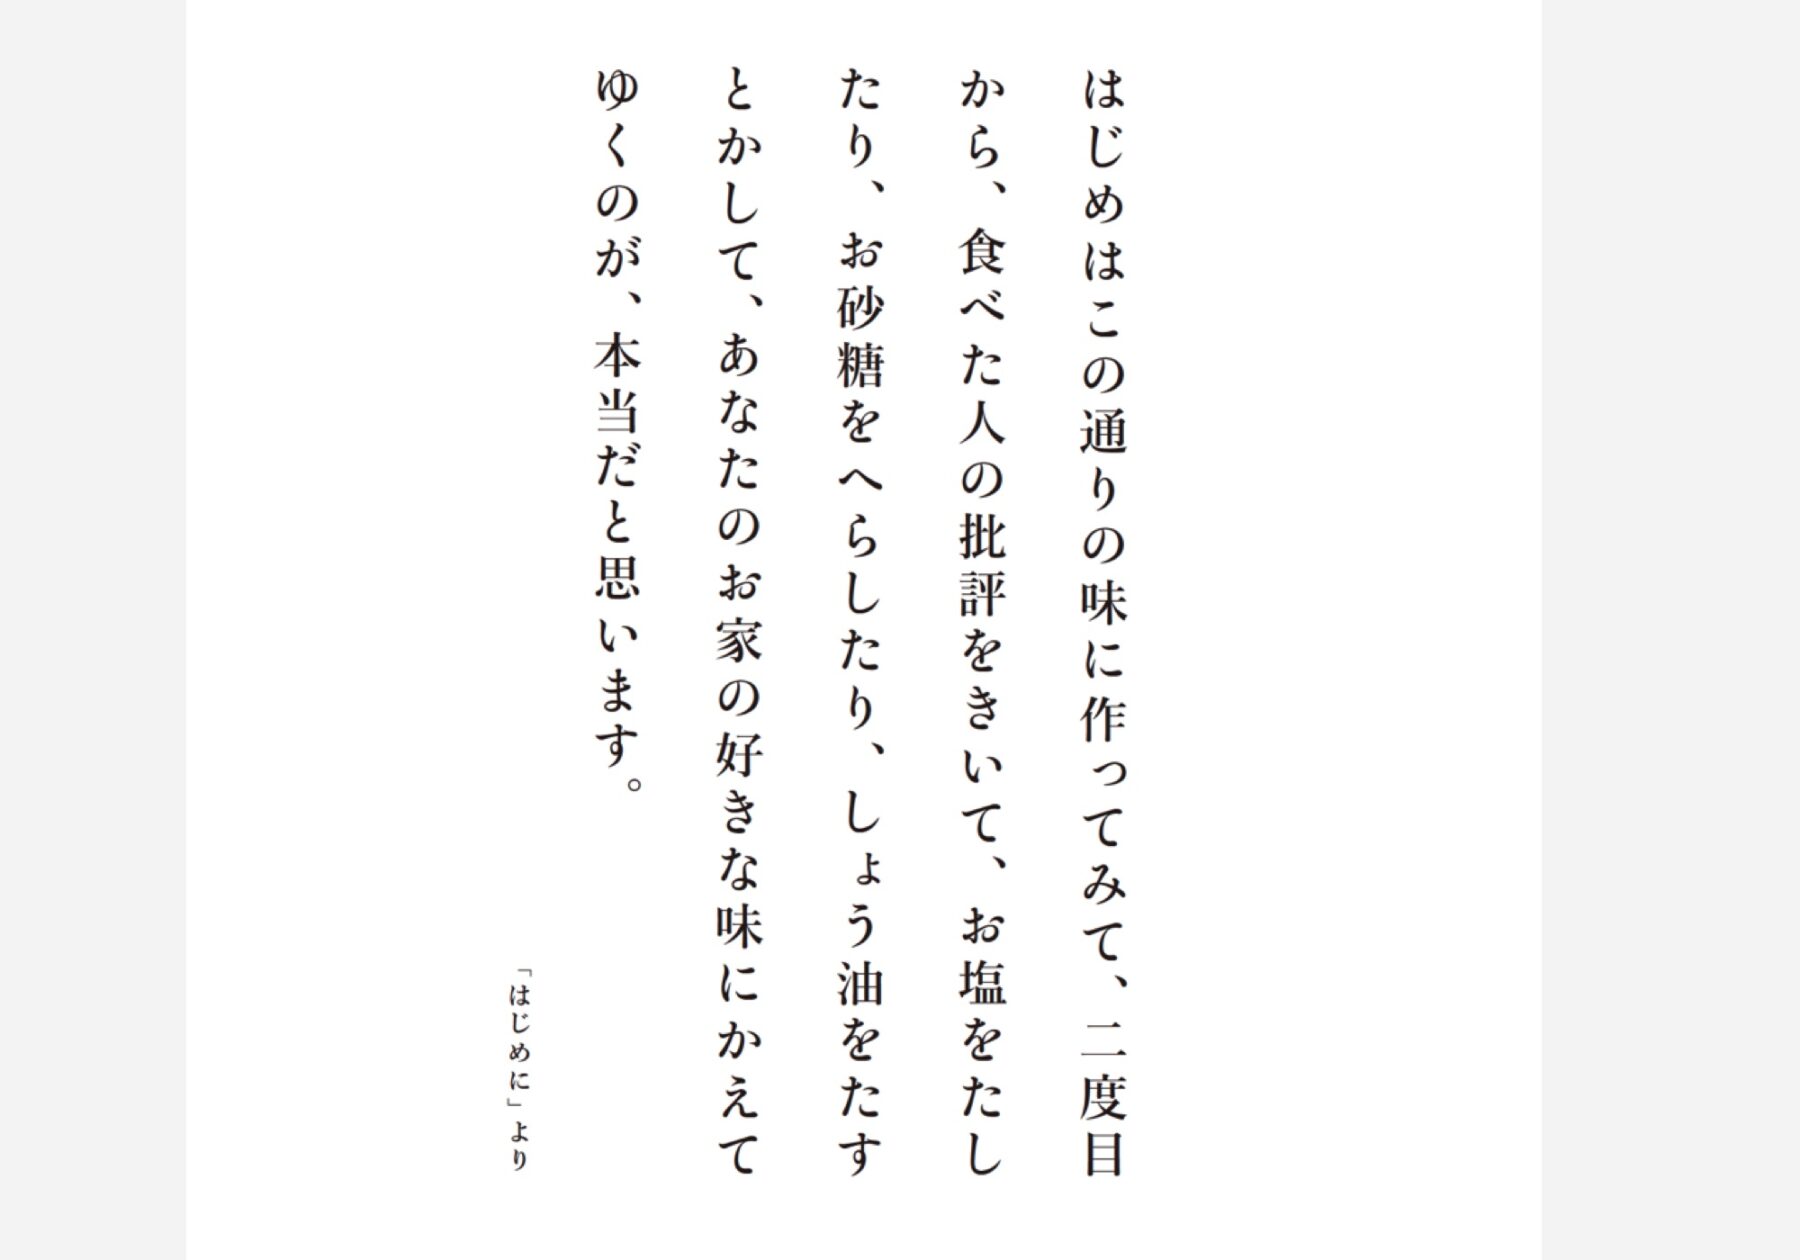 はじめはこの通りの味に作ってみて、二度目
から、食べた人の批評をきいて、お塩をたし
たり、お砂糖をへらしたり、しょう油をたす
とかして、あなたのお家の好きな味にかえて
ゆくのが、本当だと思います。
「はじめに」より